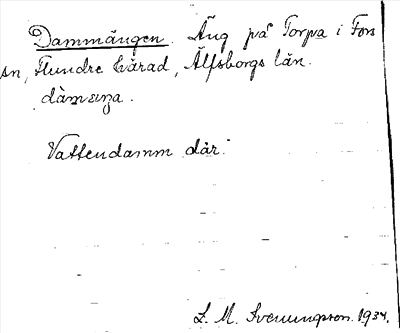 Dammängen. Äng på Torpa i Fors
sn, Flundre härad, Älfsborgs län.
Vattendamm där.
L. M. Svenungsson. 1934.